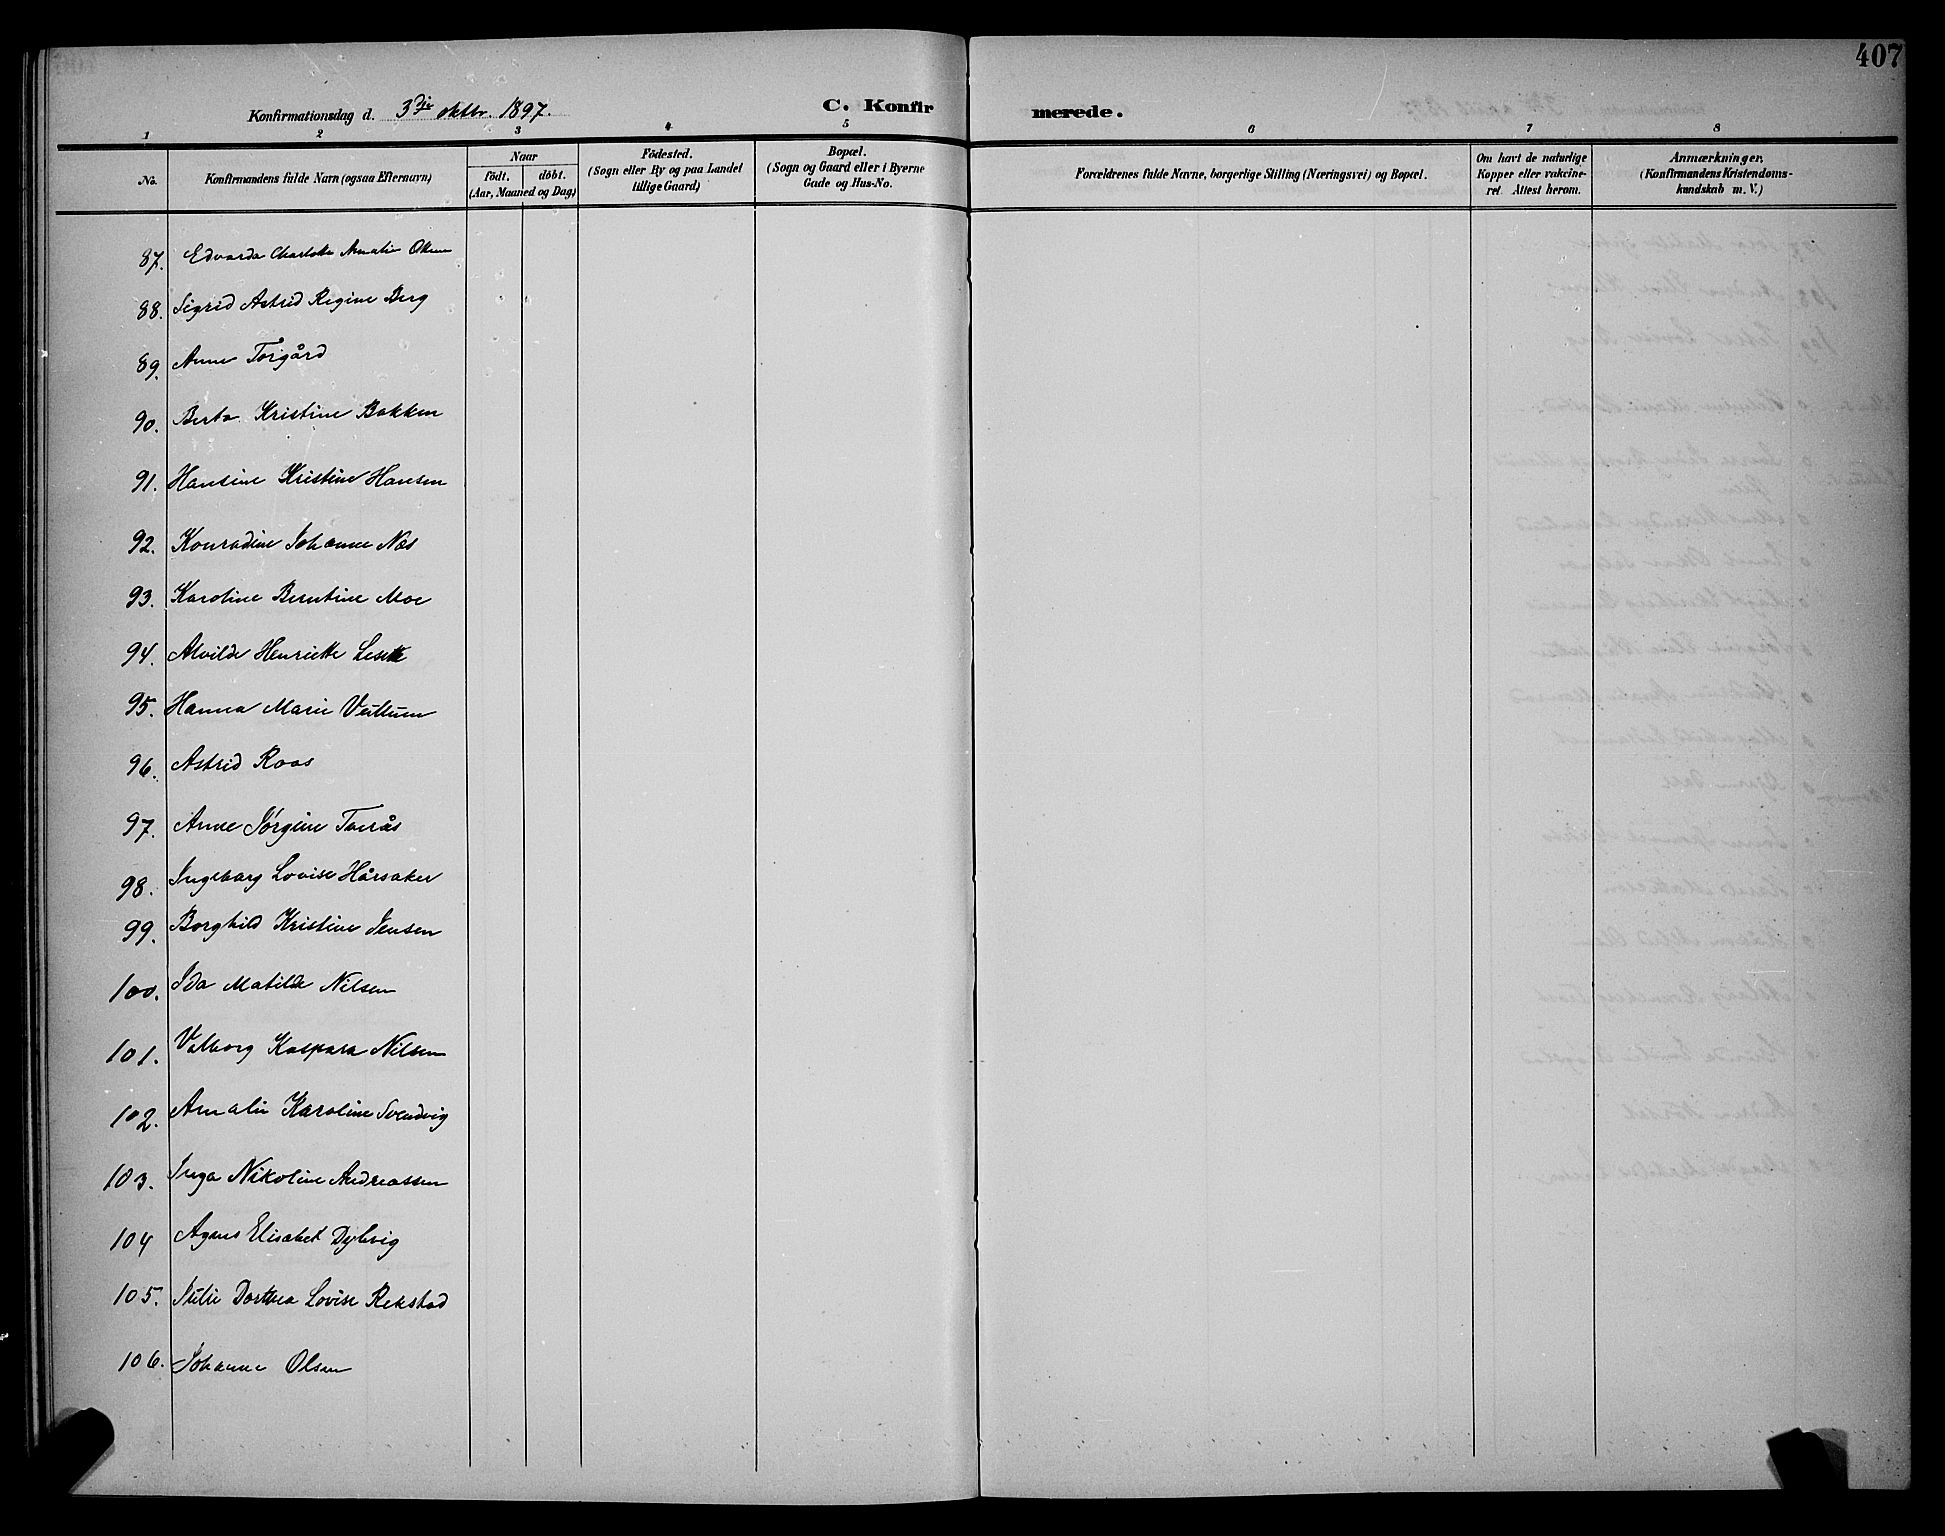 407
Konfirmationsdag d. 3die oktbr. 1897.
C. Konfir
merede.
1 2 3 4 5 6 7 8
No.
Konfirmandens fulde Navn (ogsaa Efternavn)
Naar
født. døbt.
(Aar, Maaned og Dag)
Födested.
(Sogn eller By og paa Landet
tillige Gaard)
Bopæl.
(Sogn og Gaard eller i Byerne
Gade og Hus-No.
Forældrenes fulde Navne, borgerlige Stilling (Næringsvei) og Bopæl.
Om havt de naturlige
Kopper eller vakcine-
ret. Attest herom.
Anmærkninger.
(Konfirmandens Kristendoms-
kundskab m. V.)
87. Edvarda Charlotte Amalie Olsen
88. Sigrid Astrid Regine Berg
89. Anne Torgård
90. Berta Kristine Bakken
91. Hansine Kristine Hansen
92. Konradine Johanne Næs
93. Karoline Berntine Moe
94. Alvilde Henriette Lesette
95. Hanna Marie Veittum
96. Astrid Roos
97. Anne Jørgine Tverås
98. Ingeborg Lovise Hårsaker
99. Borghild Kristine Jensen
100. Ida Matilde Nilsen
101. Valborg Kaspara Nilsen
102. Amalie Karoline Svendvig
103. Inga Nikoline Andreassen
104 Agnes Elisabet Dybvig
105. Julie Dorthea Lovise Rekstad
106. Johanne Olsen